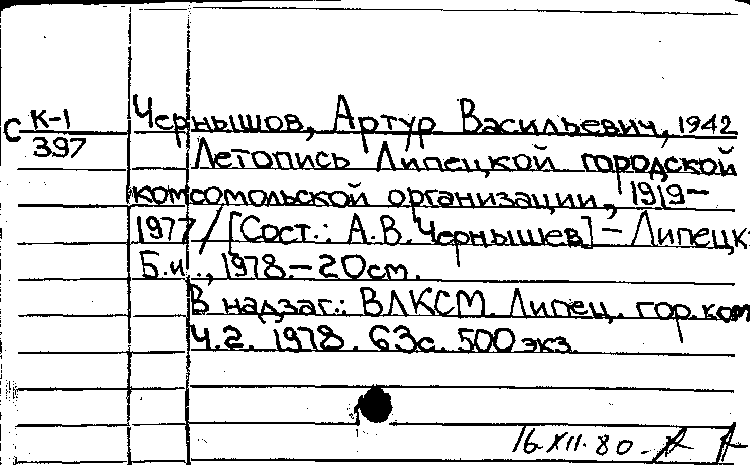 Чернышов, Артур Васильевич, 1942
С К-1
397
Летопись Липецкой городской
комсомольской организации, 1919-
1977 / [Сост.: А.В. Чернышев] - Липецк:
Б.и., 1978. - 20 см.
В надзаг.: ВЛКСМ. Липец. гор. ком
Ч.2. 1978. 63с. 500 экз.
16.XII.80.